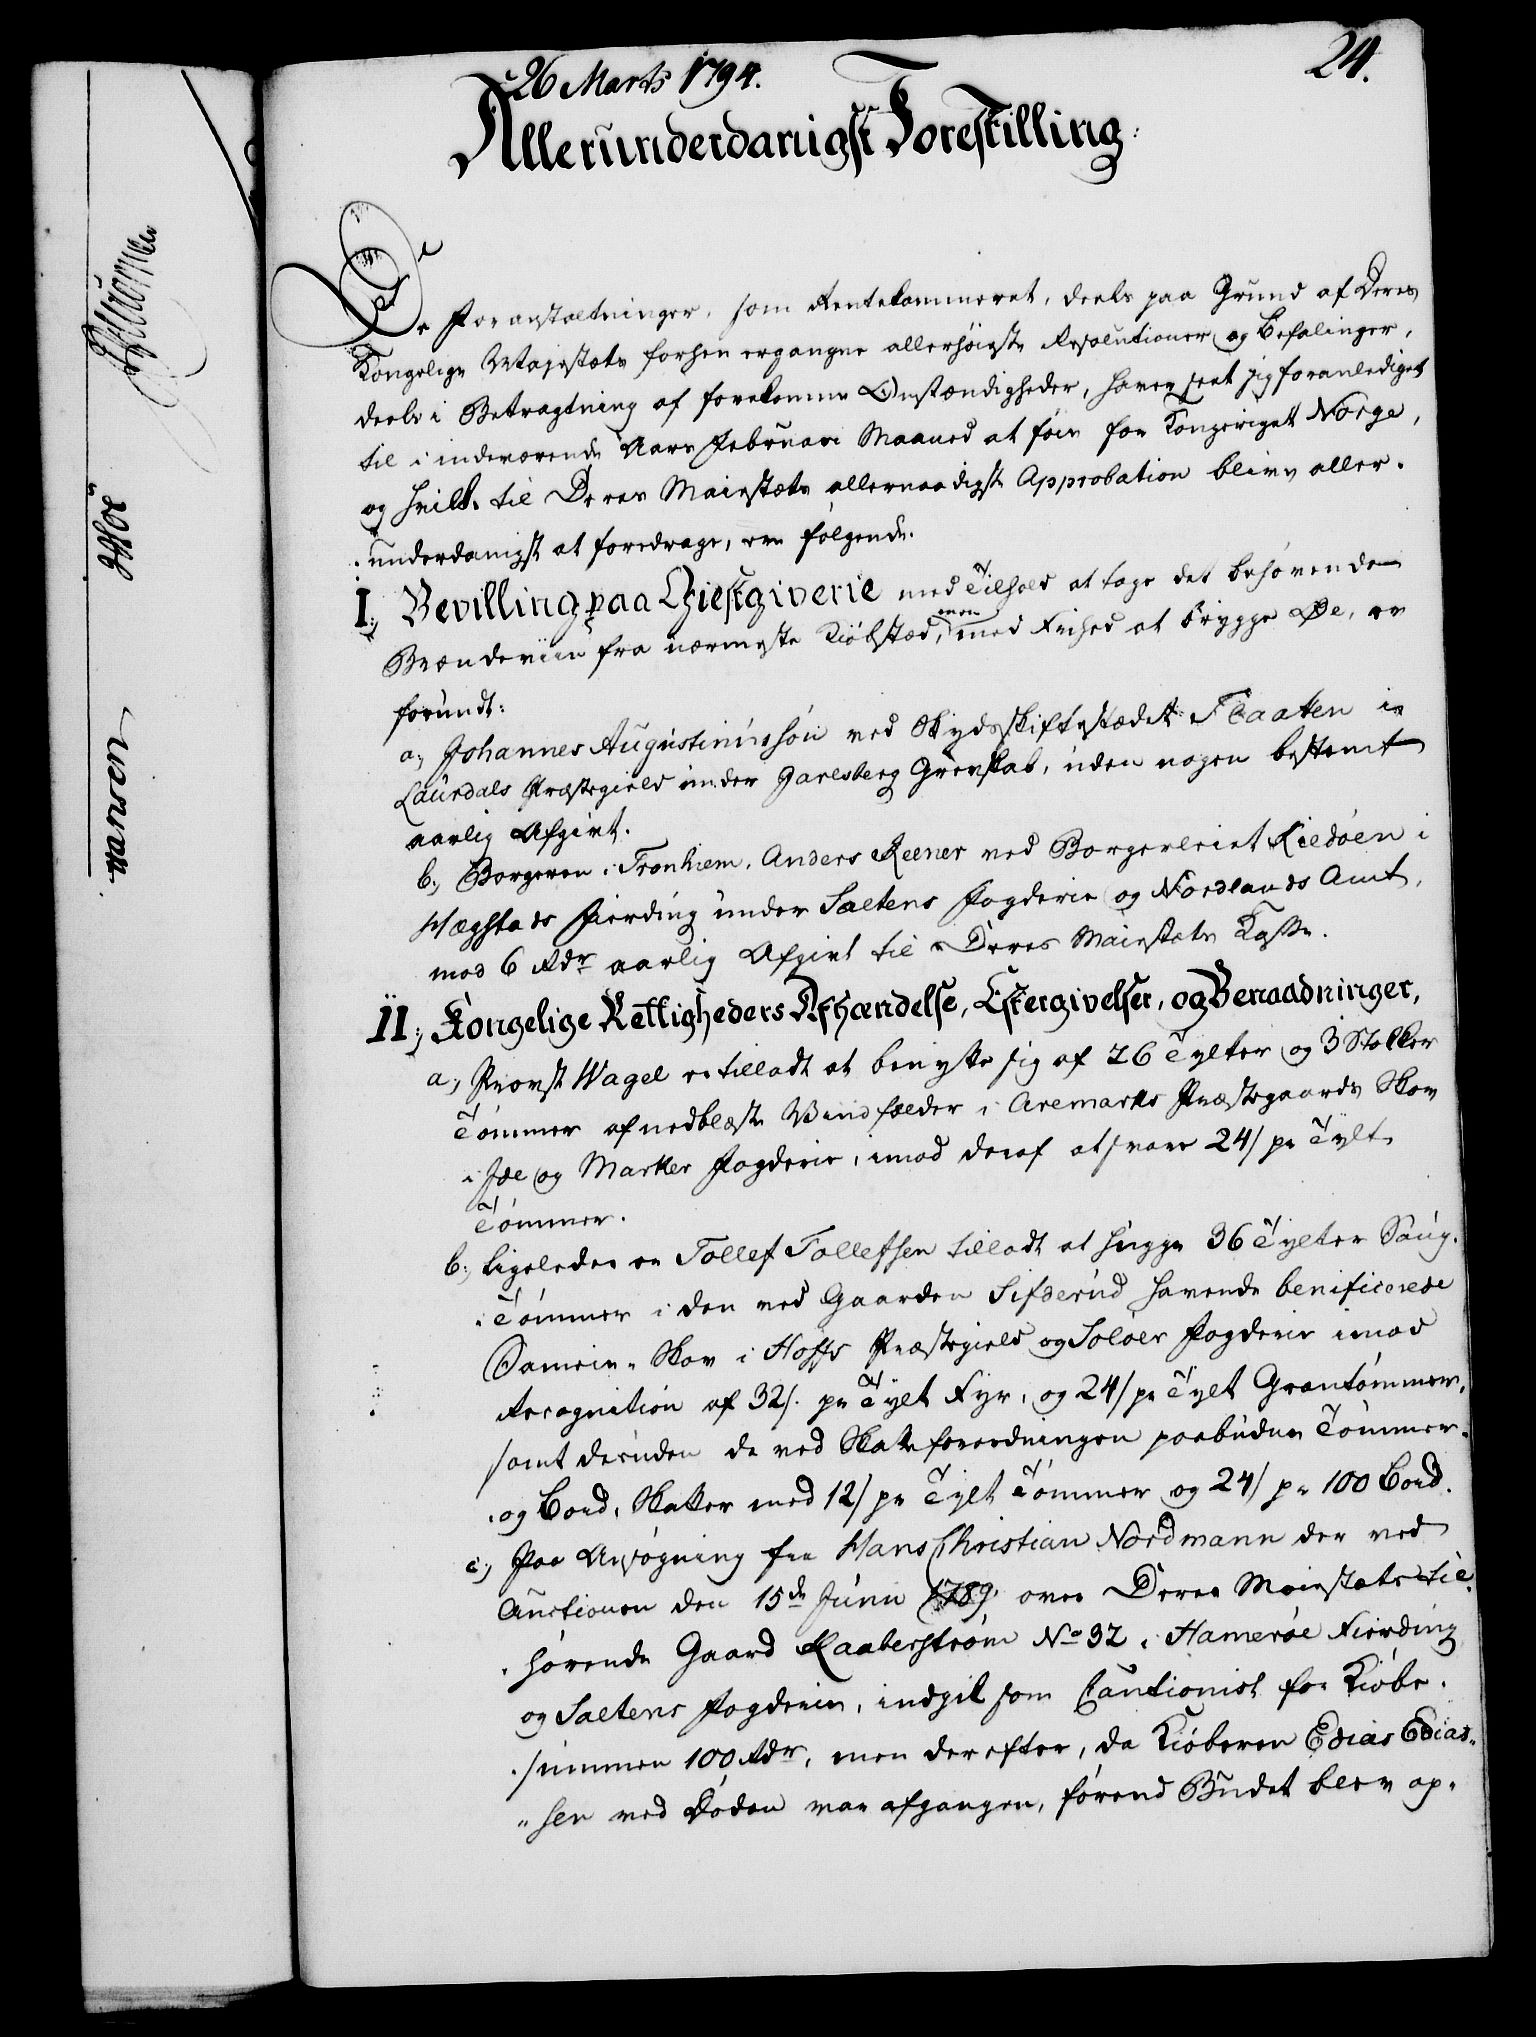 26 Marts 1794.
24.
Allerunderdanigst Forestilling:
De Foranstaltninger, som Rentekammeret, deels paa Grund af Deres
Kongelige Majestæts forhen ergangne allerhöieste Resolutioner og Befalinger,
deels i Betragtning af forekomne Omstændigheder, haver seet sig foranlediget
til i indeværende Aars Februari Maaned at föie for Kongeriget Norge,
og hvilke til Deres Majestæts allernaadigste Approbation blive aller-
underdanigst at foredrage, ere fölgende.
I., Bevilling paa Giestgiverie med Tilhold at tage det behövende
Brændeviin fra nærmeste Kiöbstæd, men med Frihed at brygge Øl, er
forundt:
a, Johannes Augustinussön ved Skydsskiftestædet Flaaten i
Laurdals Præstegield under Jarlsberg Grevskab, uden nogen bestemt
aarlig Afgivt.
b, Borgeren i Tronhiem, Anders Reener ved Borgerleiet Kiedöen i
Hægstads Fierding under Saltens Fogderie og Nordlands Amt,
mod 6 Rdr aarlig Afgivt til Deres Majestæts Kasse.
II., Kongelige Rettigheders Afhændelse, Eftergivelser, og Benaadninger,
a, Provst Wagel er tilladt at benytte sig af 26 Tylter og 3 Stokker
Tömmer af nedblæste Vindfælder i Aremarks Præstegaards Skov
i Ide og Marker Fogderie, imod deraf at svare 24/ pr Tylt
Tömmer.
b, Ligeledes er Tollef Tollefsen tilladt at hugge 36 Tylter Saug-
Tömmer i den ved Gaarden Sifderud havende benificerede
Sameie-Skov i Hoffs Præstegield og Solöer Fogderie imod
Recognition af 32/. pr Tylt Fyr, og 24/ pr Tylt Grantömmer,
samt desuden de ved Skatteforordningen paabudne Tömmer-
og Bord-Skatter med 12/ pr Tylt Tömmer og 24/ pr 100 Bord.
c, Paa Ansögning fra Hans Christian Nordmann der ved
Auctionen den 15de Junii 1789. over Deres Majestæts til-
hörende Gaard Raaberström No 32 i Hameröe Fierding
og Saltens Fogderie, indgik som Cautionist for Kiöbe-
summen 100 Rdr, men derefter, da Kiöberen Edias Edias-
sen ved Döden var afgangen, förend Budet blev ap-